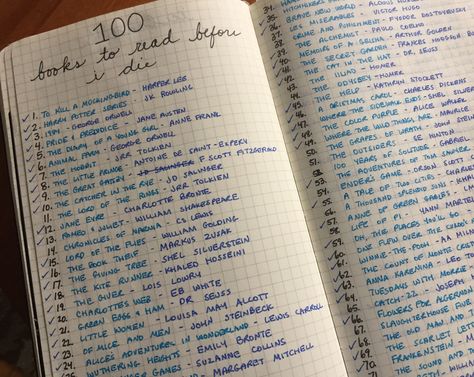 100
books to read befor
i die
1. TO KILL A MOCKINGBIRD - HARPER LEE
2. HARRY POTTER SERIES - JK ROWLING
3. 1984 - GEORGE ORWELL
4. PRIDE & PREJUDICE - JANE AUSTEN
5. THE DIARY OF A YOUNG GIRL - ANNE FRANK
6. ANIMAL FARM - GEORGE ORWELL
7. THE HOBBIT - JRR TOLKIEN
8. THE LITTLE PRINCE - ANTOINE DE SAINT-EXPERY
9. THE GREAT GATSBY - JD SALINGER F SCOTT FITZGERALD
10. THE CATCHER IN THE RYE - JD SALINGER
11. THE LORD OF THE RINGS - JRR TOLKIEN
12. JANE EYRE - CHARLOTTE BRONTE
13. ROMEO & JULIET - WILLIAM SHAKESPEARE
14. CHRONICLES OF NARNIA - CS LEWIS
15. LORD OF THE FLIES - WILLIAM GOLDING
THE BOOK THEIF - MARKUS ZUSAK
THE GIVING TREE - SHEL SILVERSTEIN
THE KITE RUNNER - KHALED HOSSEINI
THE GIVER - LOIS LOWRY
CHARLOTTE'S WEB - EB WHITE
GREEN EGGS & HAM - DR SEUSS
LITTLE WOMEN - LOUISA MAY ALCOTT
OF MICE AND MEN - JOHN STEINBECK
ALICES ADVENTURES IN WONDERLAND - LEWIS CARROL
WUTHERING HEIGHTS - EMILY BRONTE
GAMES - SUZANNE COLLINS
MARGARET MITCHELL
BRAVE NEW WORLD - ALDOUS
LES MISERABLES - VICTOR HUGO
CRIME AND PUNISHMENT - FYODOR DOSTOYEVSKY
THE ALCHEMIST - PAULO COELHO
MEMOIRS OF A GEISHA - ARTHUR GOLDEN
THE SECRET GARDEN - FRANCES HODGSON
THE CAT IN THE HAT - DR. SEUSS
THE ILIAD - HOMER
THE ODYSSEY - HOMER
THE HELP - KATHRYN STOCKETT
A CHRISTMAS CAROL - CHARLES DICKENS
WHERE THE SIDEWALK ENDS - SHEL SILVER
THE COLOR PURPLE - ALICE WALKER
THE GRAPES OF WRATH - JOHN
THE OUTSIDERS - SE HINTON
100 YEARS OF SOLITUDE - GABRIEL
THE ADVENTURES OF
ENDER'S GAME - ORSON SCOTT
A TALE OF TWO CITIES - CHARLES
A THOUSAND SPLENDID SUNS
ANNE OF GREEN GABLES
LIFE OF PI - YANN MARTEL
OH, THE PLACES YOU'LL GO
ONE FLEW OVER THE
WINNIE-THE-POOH - AA MILN
THE COUNT OF MONTE
ANNA KARENINA - LEO TO
TUESDAYS WITH MORRIE
CATCH-22 - JOSEPH
FLOWERS FOR ALGERNON
SLAUGHTERHOUSE
THE OLD MAN AND
THE SCARLET LE
FRANKENSTEIN - M
THE SOUND AND